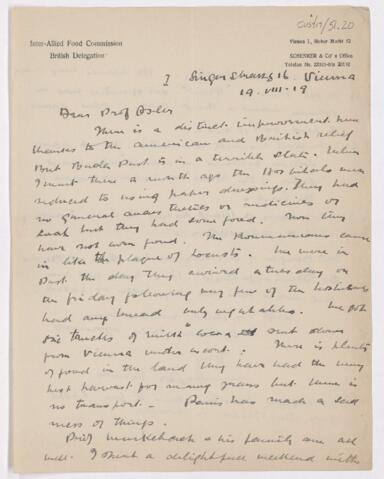 CUS417/51.20
Inter-Allied Food Commission
British Delegation
Vienna 1, Hoher Markt 12
SCHENKER & Co's Office
7 Singer Strasse 16. Vienna
19-VIII-19
Dear Prof Osler
There is a distinct improvement here
thanks to the American and British relief
But Buda Pest is in a terrible state. When
I went there a month ago the Hospitals were
reduced to using paper dressings. They had
no general anaesthetics or medicines or
but they had some food. Now they
have not even food. The Roumanians came
in like the plague of locusts. We were in
Pest the day they arrived a Tuesday on
the Friday following very few of the Hospitals
had any bread only vegetables. We got
six trucks of milk sent down
from Vienna under escort. There is plenty
of food in the land they have had the very
best harvest for many years but there is
no transport - Paris has made a sad
mess of things.
Prof & his family are all
well. I spent a delightful weekend with